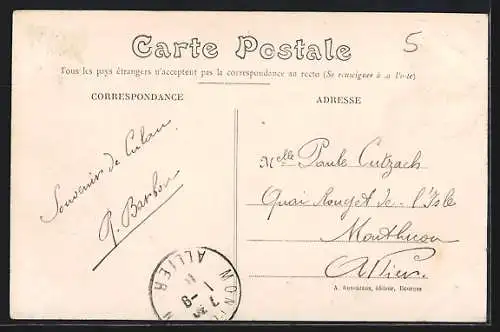 Carte Postale
5
Tous les pays étrangers n'acceptent pas la correspondance au recto (Se renseigner à la Poste)
CORRESPONDANCE
ADRESSE
Souvenir de Culan.
Melle Paule Cutzach
Quai Rouget de l'Isle
Montluçon
Allier.
ALLIER
A. Auxenfans, éditeur, Bourges